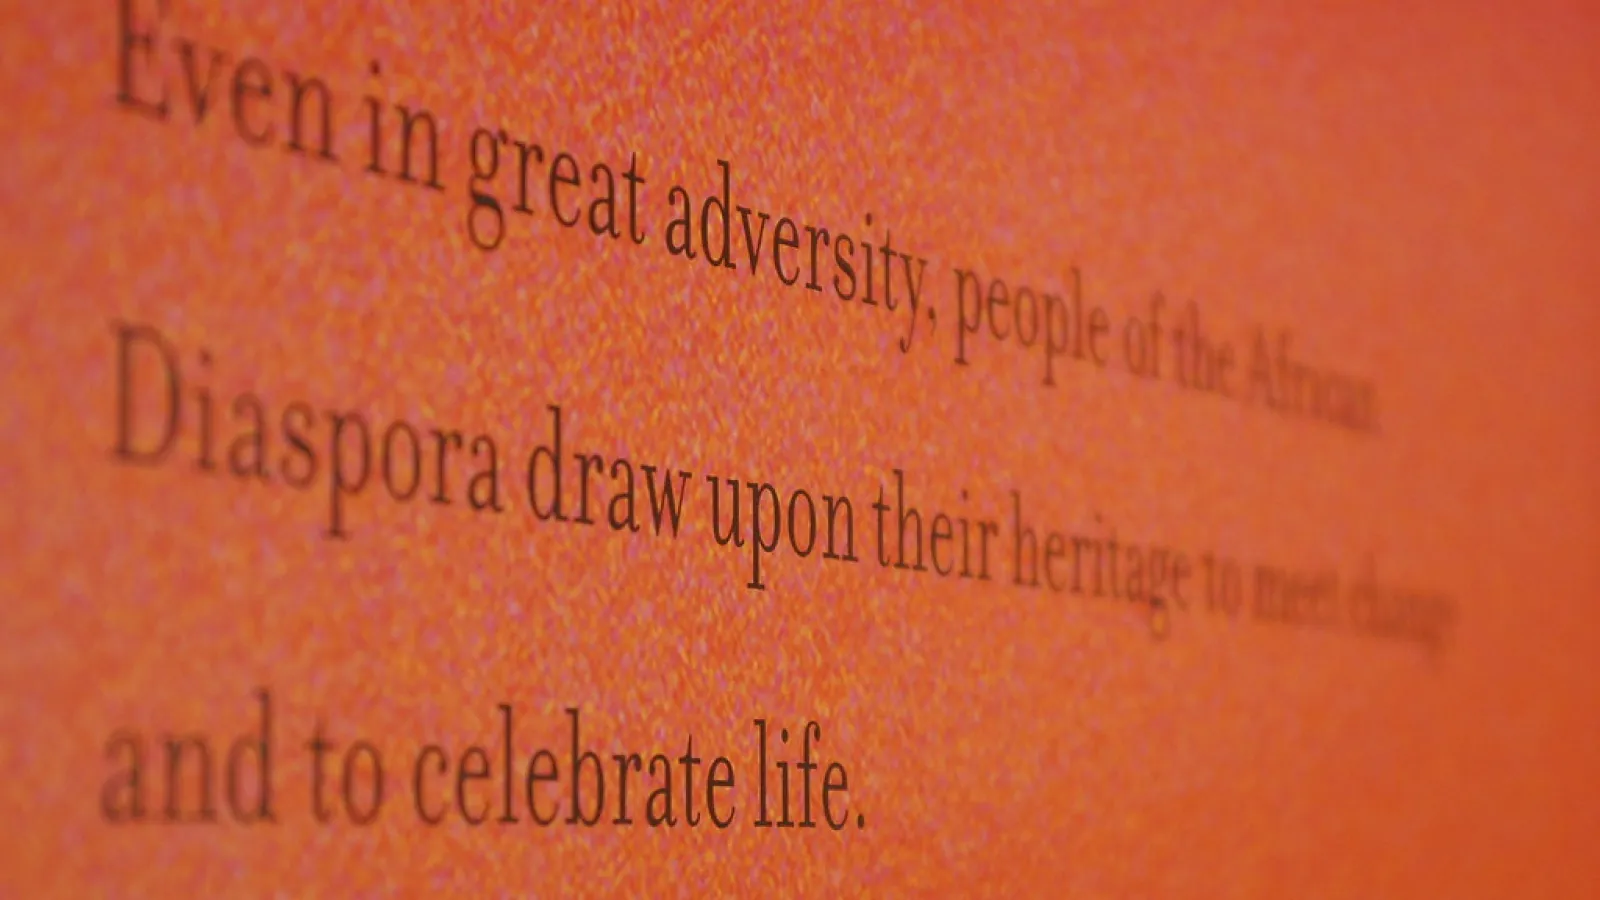 Even in great adversity, people of the African
Diaspora draw upon their heritage to meet change
and to celebrate life.